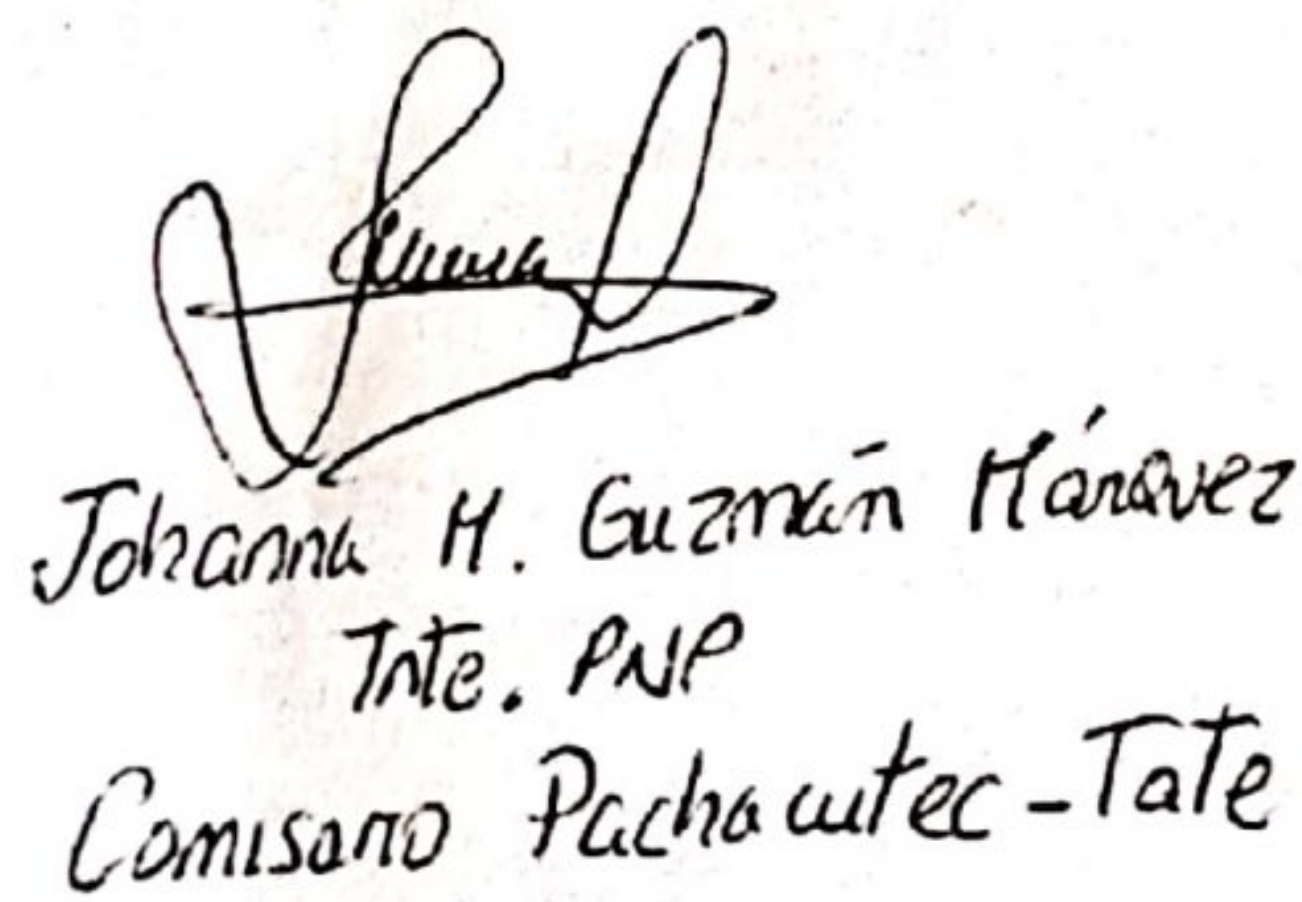 Johanna M. Guzmán Márquez
Tnte. PNP
Comisario Pachacutec - Tate